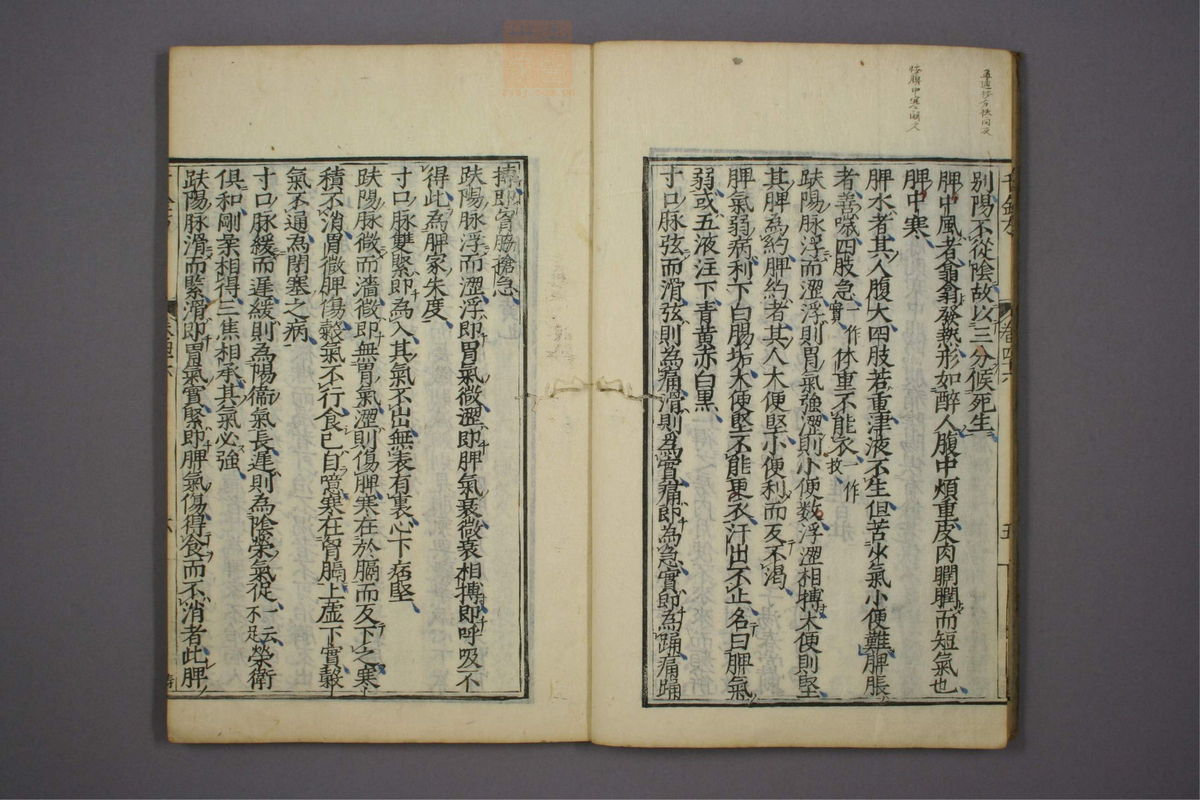 直遅移方快同文
按脾中寒之闕文
別陽不從陰故以三分候死生
脾中風者翕翕發熱形如醉人腹中煩重皮肉瞤瞤而短氣也
脾中寒
脾水者其人腹大四肢苦重津液不生但苦少氣小便難脾脹
者善噦四肢急一作實體重不能衣一作收
趺陽脉浮而澀浮則胃氣強澀則小便數浮澀相搏大便則堅
其脾為約脾約者其人大便堅小便利而反不渴
脾氣弱病利下白腸垢大便堅不能更衣汗出不止名曰脾氣
弱或五液注下青黃赤白黑
寸口脉弦而滑弦則為痛滑則為實痛即為急實即為踊痛踊
搏即胷脇搶急
趺陽脉浮而澀浮即胃氣微澀即脾氣衰微衰相搏即呼吸不
得此為脾家失度
寸口脉雙緊即為入其氣不出無表有裏心下痞堅
趺陽脉微而濇微即無胃氣澀則傷脾寒在於膈而反下之寒
積不消胃微脾傷穀氣不行食已自噫寒在胷膈上虛下實穀
氣不通為閉塞之病
寸口脉緩而遲緩則為陽衞氣長遲則為陰榮氣促一云不足榮衛
俱和剛柔相得三焦相承其氣必強
趺陽脉滑而緊滑即胃氣實緊即脾氣傷得食而不消者此脾
卷四六
五
六